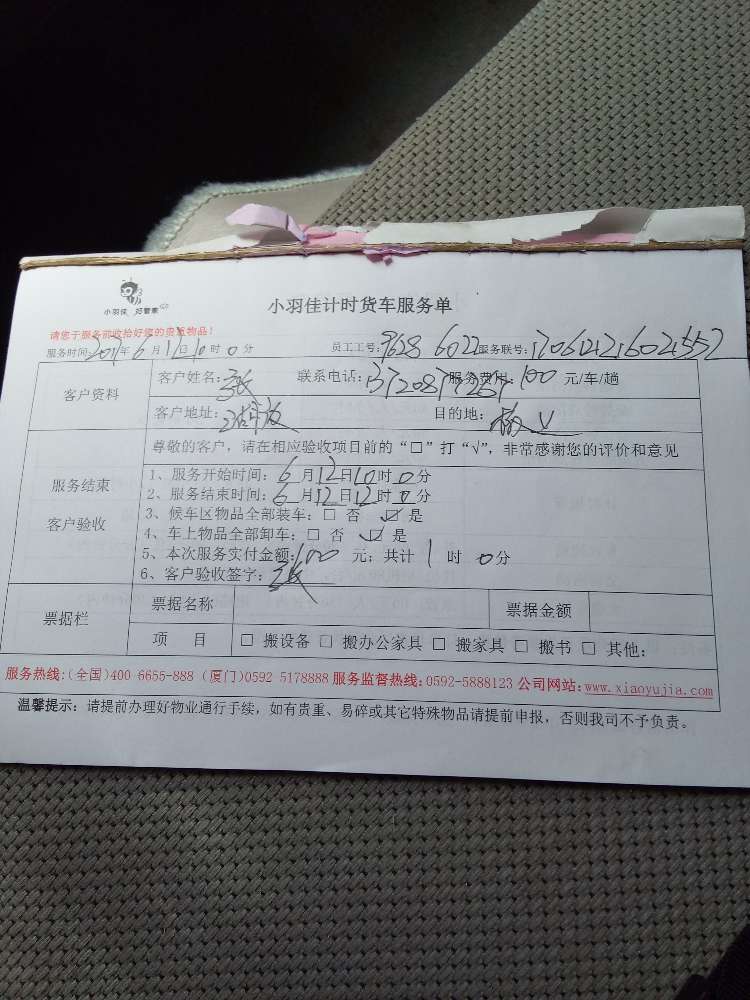 小羽佳 好管家
小羽佳计时货车服务单
请您于服务前收拾好您的贵重物品！
服务时间：2017年6月12日10时0分 员工工号：9628 6022 服务联号：
客户资料
客户姓名：张 联系电话： 服务费用：100 元/车/趟
客户地址： 目的地：
尊敬的客户，请在相应验收项目前的“□”打“√”，非常感谢您的评价和意见
服务结束
客户验收
1、服务开始时间：6月12日10时0分
2、服务结束时间：6月12日12时0分
3、候车区物品全部装车：□ 否 ☑ 是
4、车上物品全部卸车：□ 否 ☑ 是
5、本次服务实付金额：100 元；共计 1 时 0分
6、客户验收签字：张
票据栏
票据名称 票据金额
项 目 □ 搬设备 □ 搬办公家具 □ 搬家具 □ 搬书 □ 其他：
服务热线：(全国)400-6655-888 (厦门)0592 5178888 服务监督热线：0592-5888123 公司网站：www.xiaoyujia.com
温馨提示：请提前办理好物业通行手续，如有贵重、易碎或其它特殊物品请提前申报，否则我司不予负责。